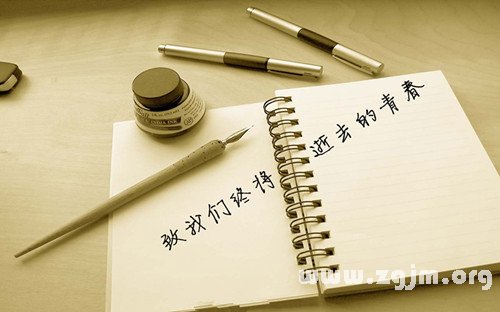 致我们终将逝去的青春
INDIA INK
www.zgjm.org